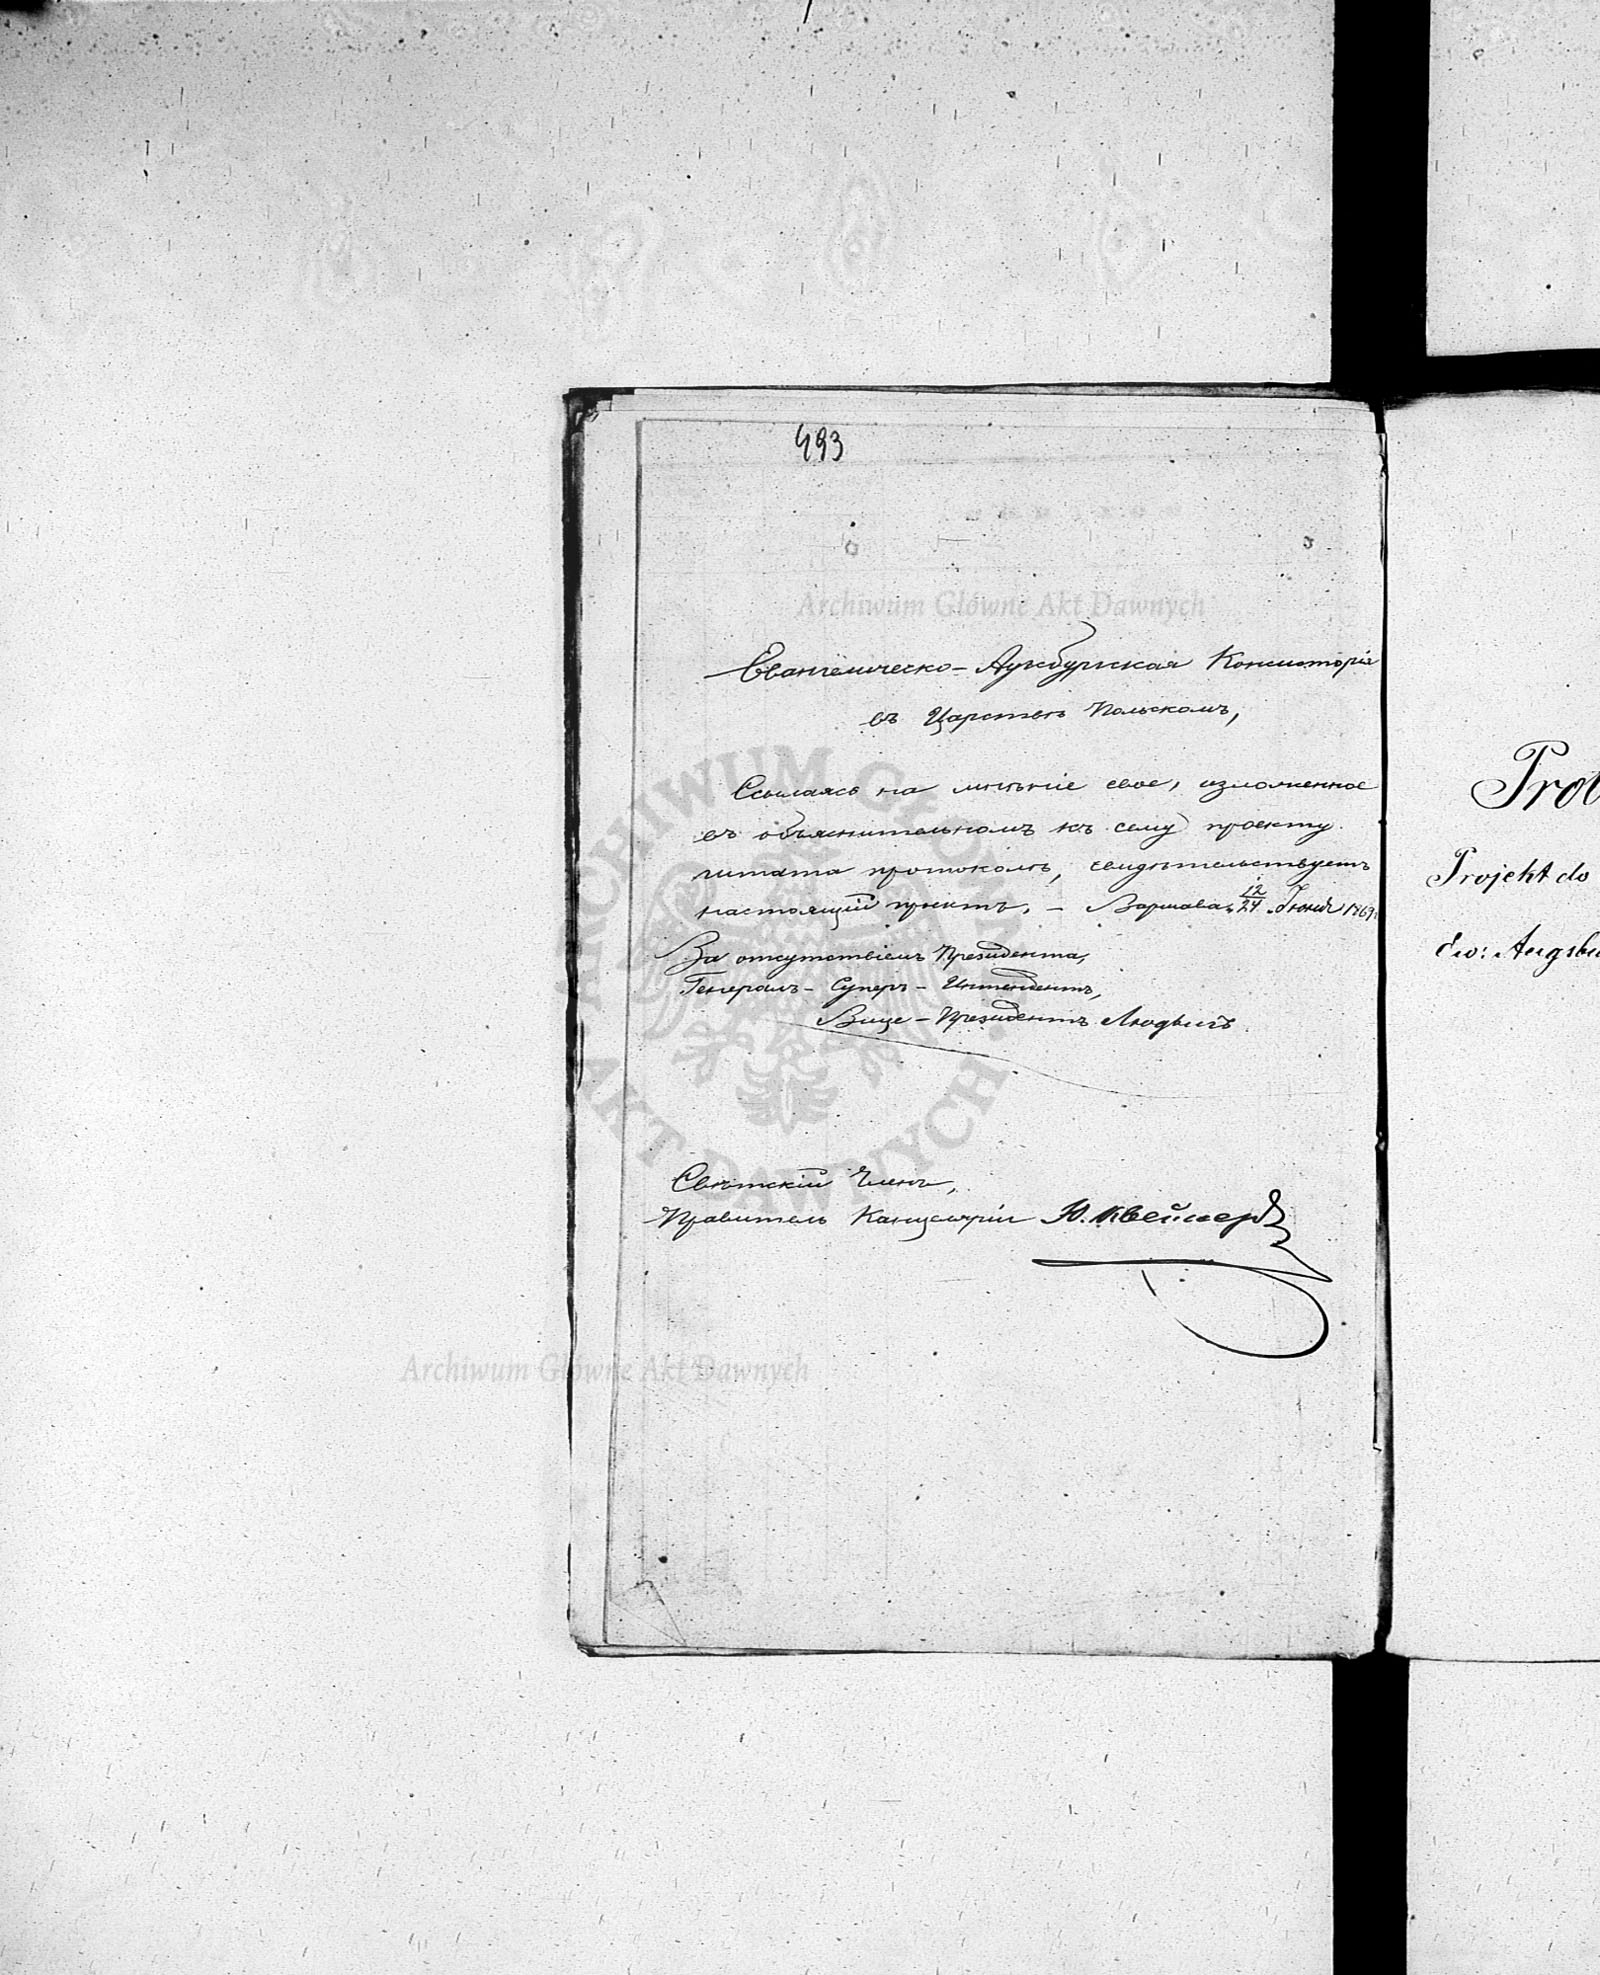 493
Archiwum Główne Akt Dawnych
Евангелическо-Аугсбургская Консисторія
въ Царствѣ Польскомъ,
Ссылаясь на мнѣніе свое, изложенное
въ объяснительномъ къ сему проекту
штата протоколѣ, свидѣтельствуетъ
настоящій проектъ. – Варшава 12/24 Іюня 1869 г.
За отсутствіемъ Президента,
Генералъ-Суперъ-Интендентъ,
Вице-Президентъ Людвигъ
Свѣтскій Членъ,
Правитель Канцеляріи Ю. Квейсеръ
Archiwum Główne Akt Dawnych
ARCHIWUM GŁÓWNE AKT DAWNYCH
Prot
Projekt do
Ew: Augsbu